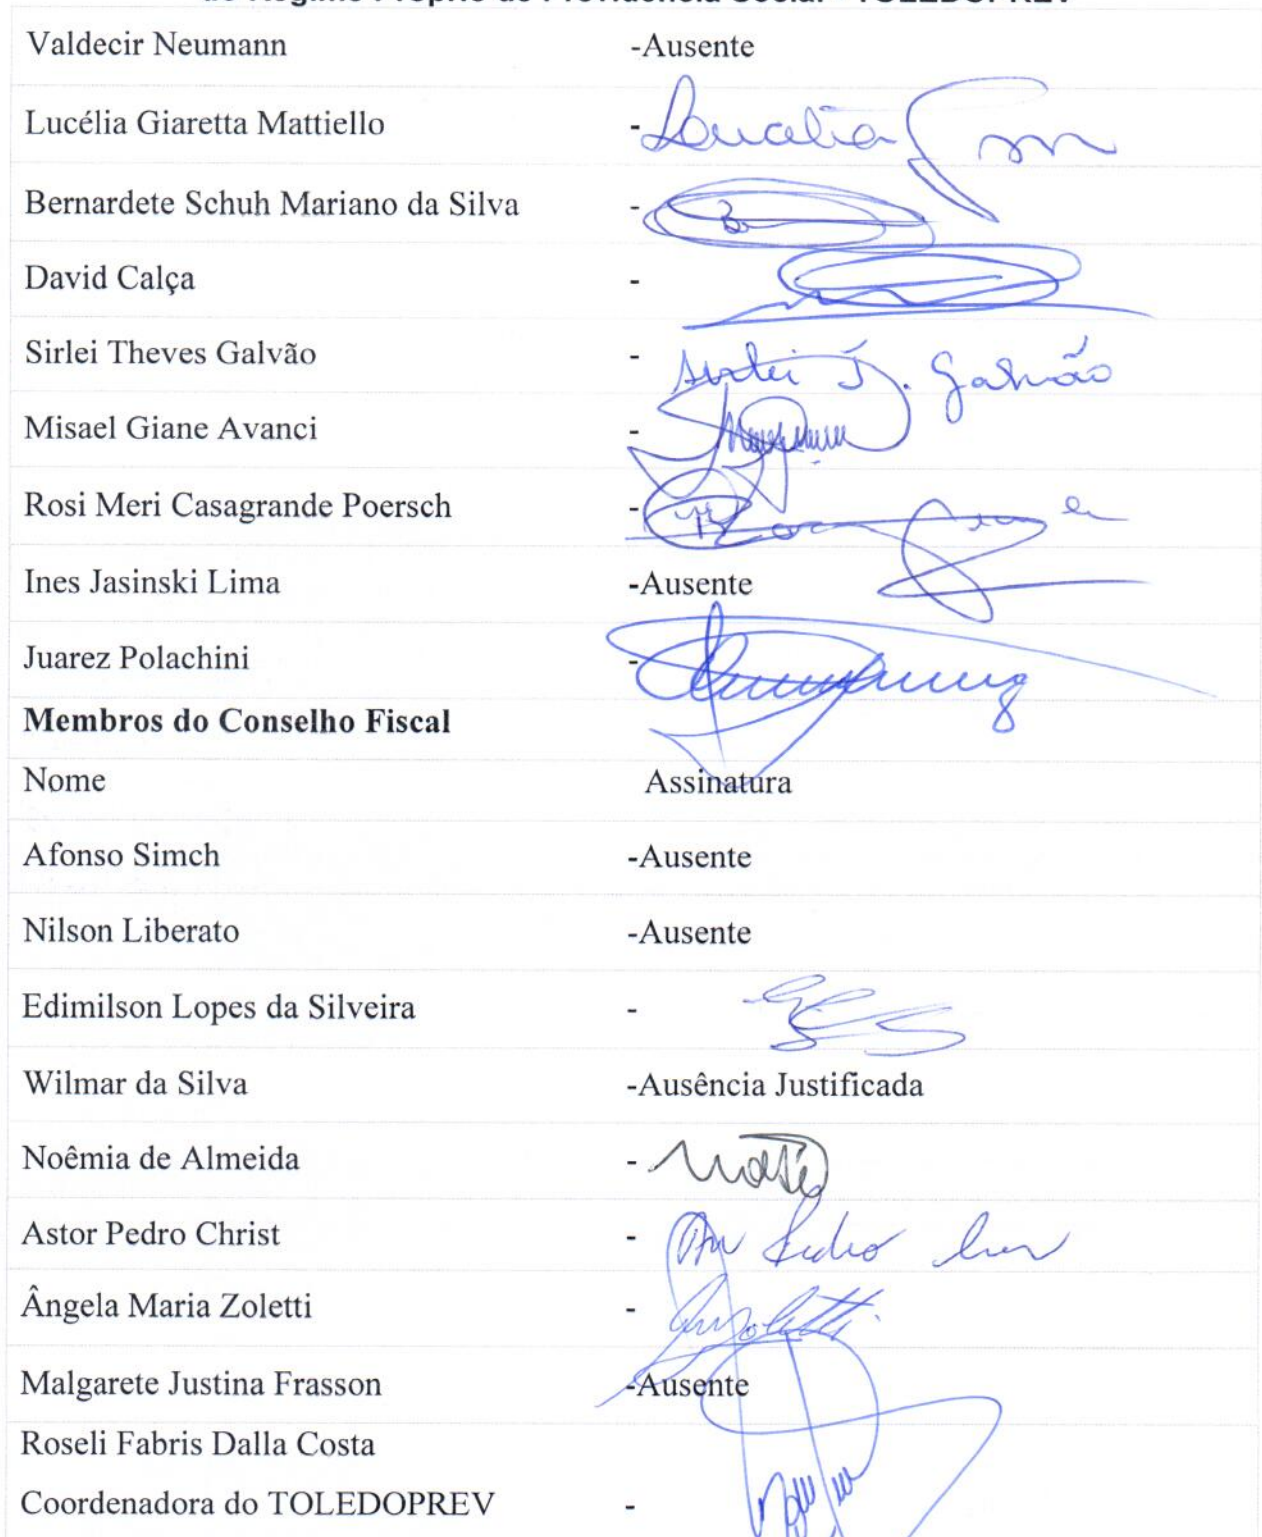 Valdecir Neumann -Ausente
Lucélia Giaretta Mattiello -
Bernardete Schuh Mariano da Silva -
David Calça -
Sirlei Theves Galvão - Sirlei T. Galvão
Misael Giane Avanci -
Rosi Meri Casagrande Poersch -
Ines Jasinski Lima -Ausente
Juarez Polachini -
Membros do Conselho Fiscal
Nome Assinatura
Afonso Simch -Ausente
Nilson Liberato -Ausente
Edimilson Lopes da Silveira -
Wilmar da Silva -Ausência Justificada
Noêmia de Almeida -
Astor Pedro Christ - Pedro
Ângela Maria Zoletti -
Malgarete Justina Frasson -Ausente
Roseli Fabris Dalla Costa
Coordenadora do TOLEDOPREV -